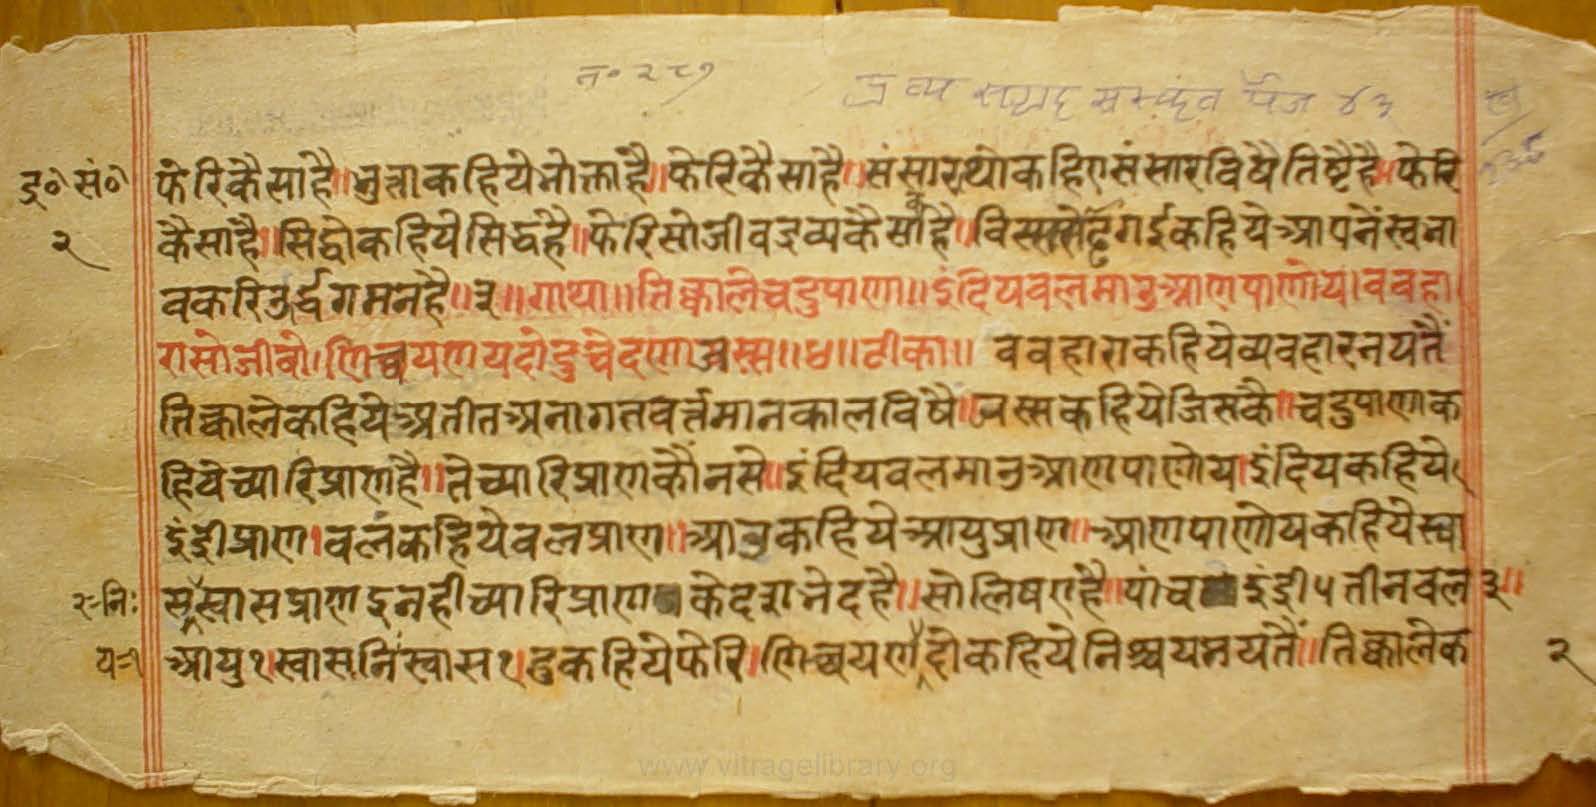 न० २८७
द्रव्य सग्रह संस्कृत पेज ४३
द्र० सं०
फेरि कैसा है॥ भुत्ता कहिये भोक्ता है॥ फेरि कैसा है॥ संसारथो कहिए संसार विषै तिष्टै है॥ फेरि
२
कैसा है॥ सिद्धो कहिये सिद्ध है॥ फेरि सो जीवद्रव्य कैसा है॥ विस्ससोढ्ढगई कहिये आपनें स्वभा
व करि उर्द्ध गमन है॥३॥ गाथा॥ तिक्काले चदुपाणा॥ इंदिय वल माउ आणपाणोय। ववहा
रा सो जीवो। णिच्चयणयदो दु चेदणा जस्स॥४॥ टीका॥ ववहारा कहिये व्यवहारनयतैं
तिक्काले कहिये अतीत अनागत वर्त्तमान काल विषैं॥ जस्स कहिये जिसकै॥ चदुपाणा क
हिये च्यारि प्राण है॥ ते च्यारि प्राण कौंन से॥ इंदिय वल माउ आणपाणोय। इंदिय कहिये
इंद्रीप्राण। वल कहिये वलप्राण॥ आउ कहिये आयुप्राण॥ आणपाणोय कहिये स्वा
सस्वासप्राण इनही च्यारि प्राण के दश भेद है॥ सो लिषए है॥ पांच इंद्री ५ तीन वल ३॥
आयु १ स्वासनिस्वास १। दु कहिये फेरि। णिच्चयणयदो कहिये निश्चयनयतैं॥ तिक्काले क
२
www.vitragelibrary.org